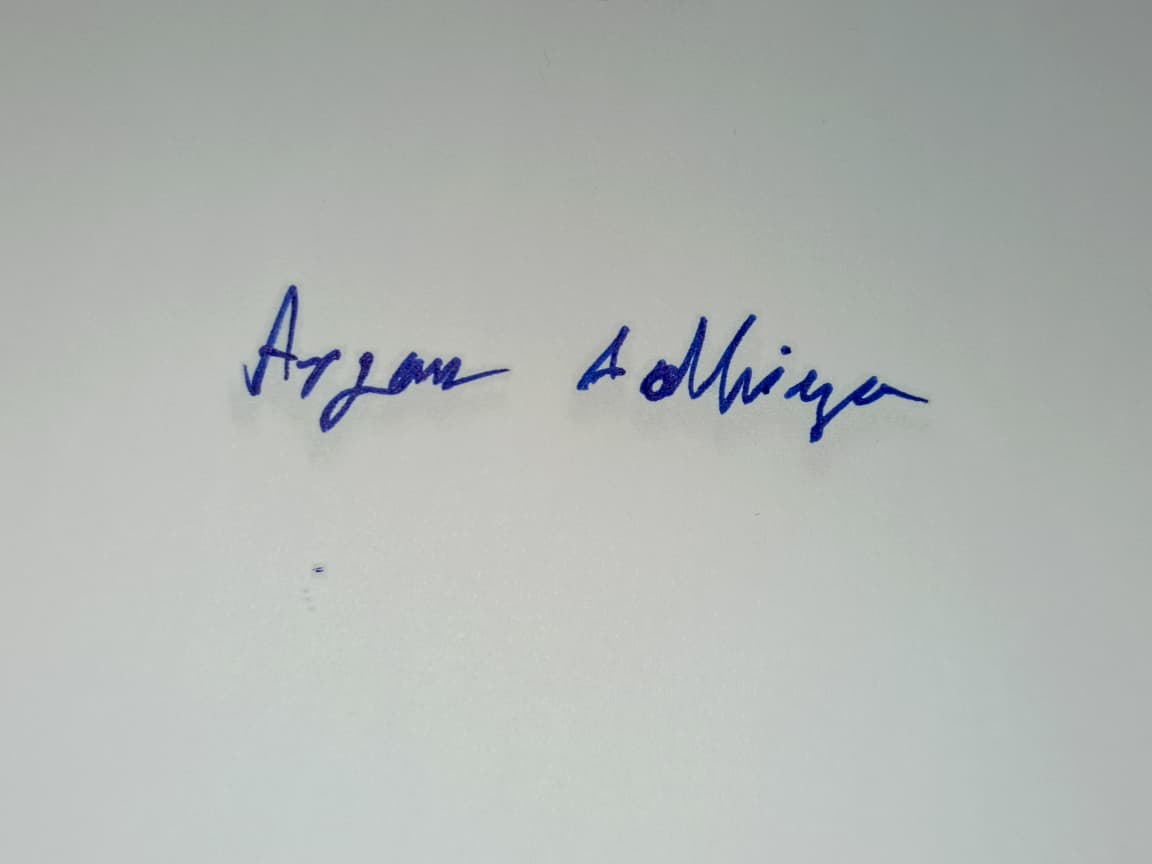 Aryan Adhiya